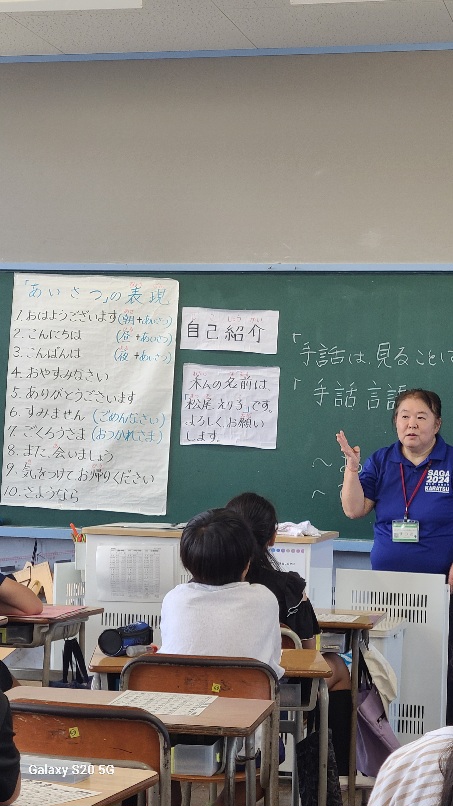 「あいさつ」の表現
1. おはようございます(朝+あいさつ)
2. こんにちは (昼+あいさつ)
3. こんばんは (夜+あいさつ)
4. おやすみなさい
5. ありがとうございます
6. すみません (ごめんなさい)
7. ごくろうさま (おつかれさま)
8. また、会いましょう
9. 気をつけてお帰りください
10. さようなら
じこしょうかい
自己紹介
私の名前は
「松尾えりろ」です。
よろしくお願い
します。
「手話は、見ることは
「手話言語
SAGA
2024
KARATSU
Galaxy S20 5G